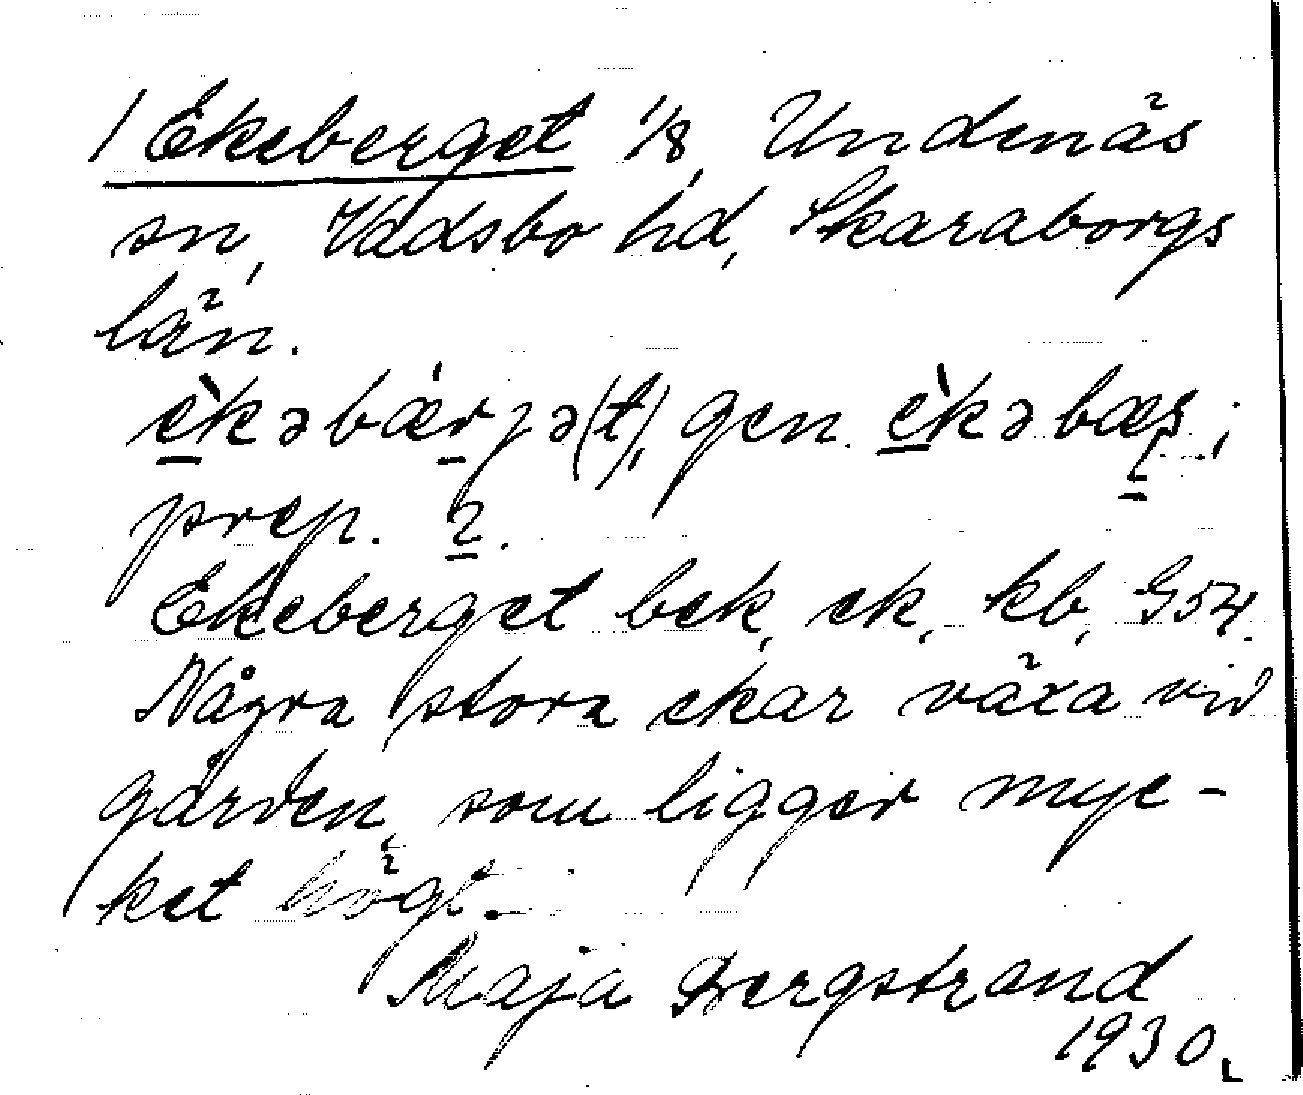 1 Ekeberget 1/8, Undenäs
sn, Vadsbo hd, Skaraborgs
län.
èkəbǽrjə(t), gen. èkəbæş;
prep. 2.
Ekeberget bek, ek, kb, G54.
Några stora ekar växa vid
gården, som ligger myc-
ket högt.
Maja Bergstrand
1930.